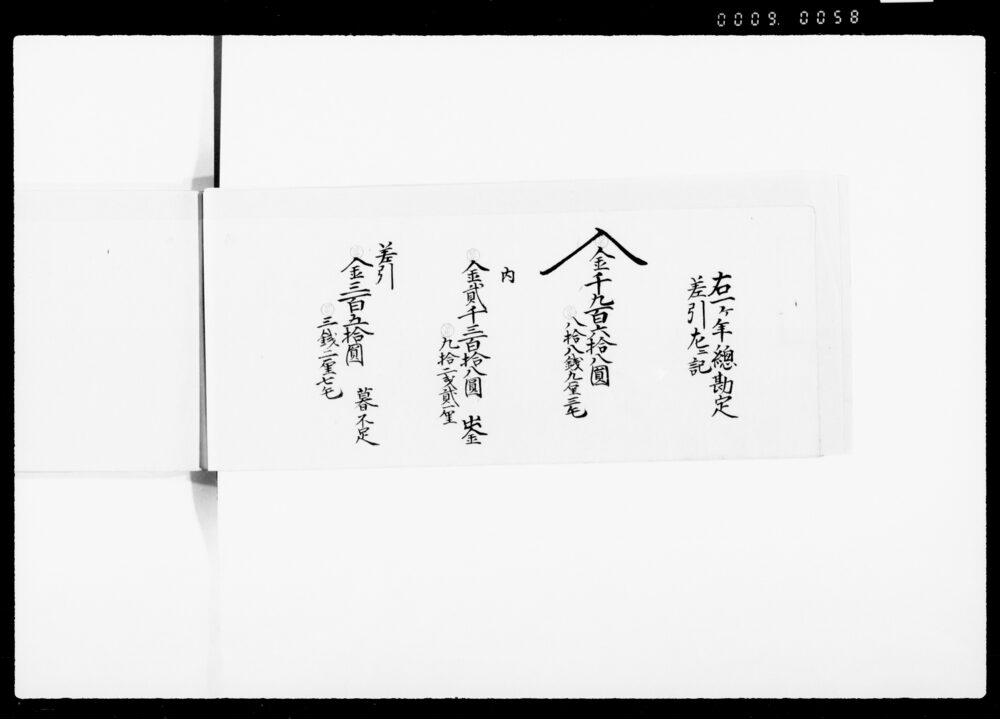 0009. 0058
右一ヶ年總勘定
差引左ニ記
入
金千九百六拾八圓
八拾八銭九厘三毛
内
金貳千三百拾八圓 出金
九拾二戔貳厘
差引
金三百五拾圓 暮不足
三銭二厘七毛